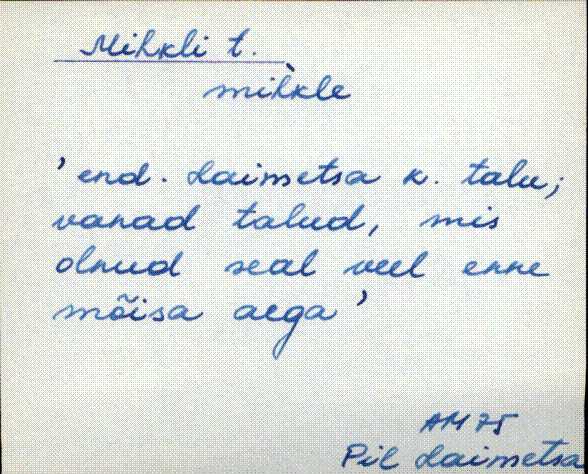 Mihkli t.
mihk̀le
'end. Laimetsa k. talu;
vanad talud, mis
olnud seal veel enne
mõisa aega'
AM 75
Pil Laimetsa